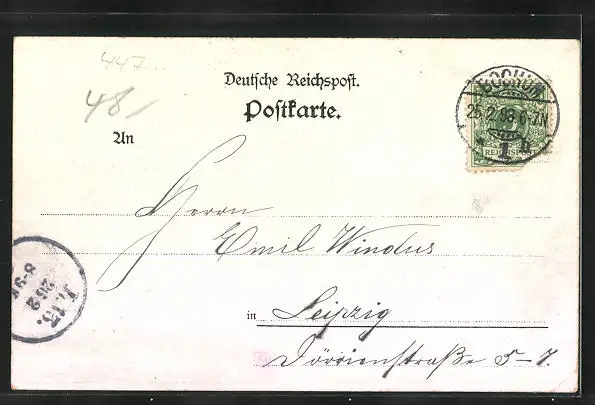 447
48
Deutsche Reichspost.
Postkarte.
BOCHUM
25.2.98.6-7N
1
REICHSPOST
An
Herrn
Emil Windus
in Leipzig
Dörrienstraße 5-7.
L. 13.
26 2